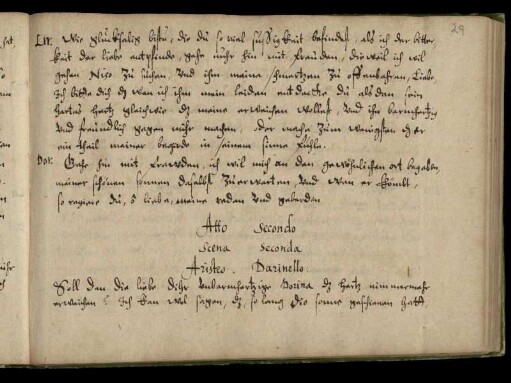 29
Lir: Wie glückhselig bistu, die du so viel süssigkeit befindest, als ich der bitter
keit der liebe entpfinde, gehe nuhr hin mit freuden, dieweil ich wil
gehen Niso zu suchen, vnd ihm meine schmertzen zu offenbahren, Liebe
ich bitte dich dz wan ich ihm mein leiden entdecke du als den sein
hartes hertz gleichwie dz meine erweichen wollest, vnd ihn barmhertzig
vnd freundlich gegen mihr machen, oder mache zum wenigsten dz er
ein theil meiner begirde in seinem sinne fühle.
Dor: Gehe hin mit frewden, ich wil mich an den gewöhnlichen ort begeben,
meiner schönen sonnen daselbst zu erwarten, vnd wan er kömbt,
so regiere du, o liebe, meine reden vnd geberden
Atto Secondo
Scena Seconda
Aristeo. Darinello.
Soll den die liebe dihr vnbarmhertzige Dorina dz hertz nimmermehr
erweichen? Ich kan wol sagen, dz, so lang die sonne geschienen hatt